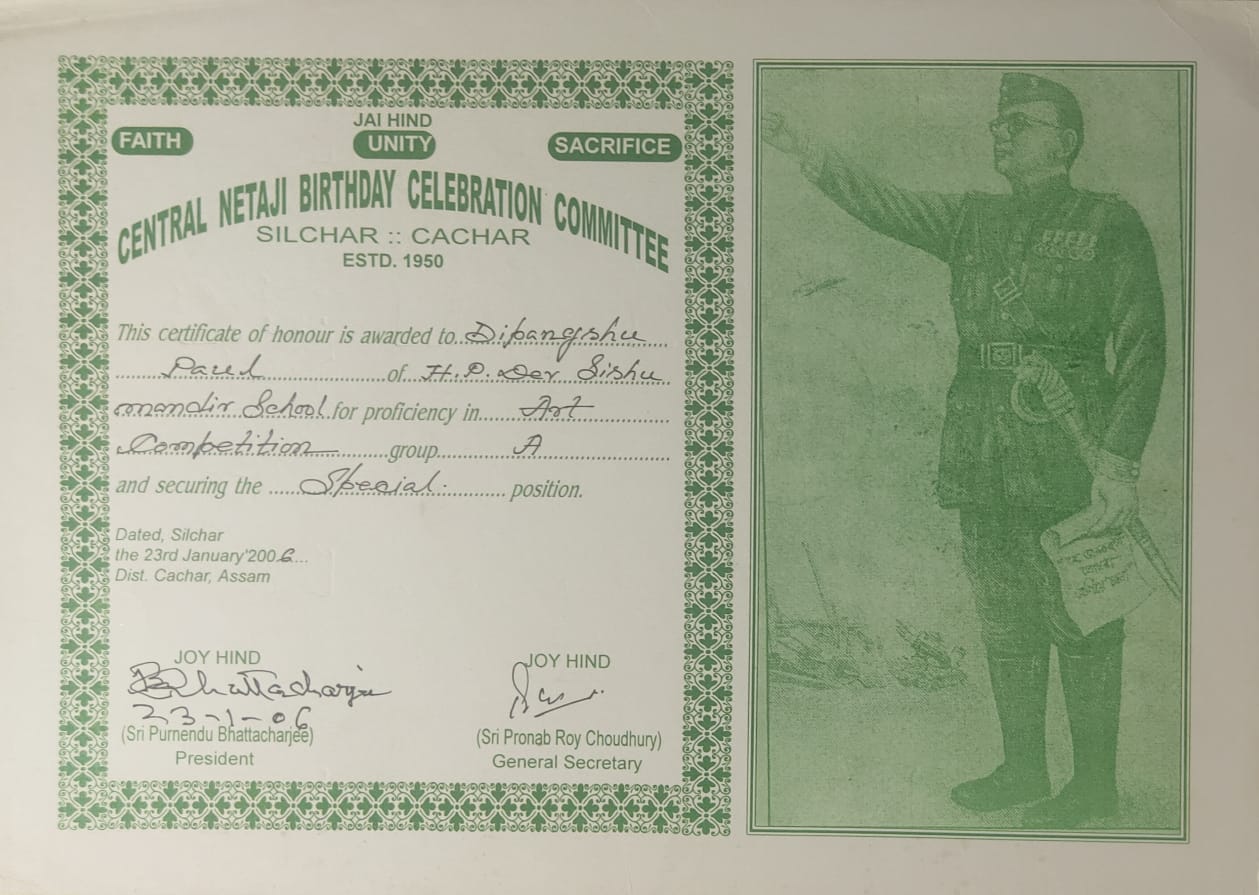 JAI HIND
FAITH UNITY SACRIFICE
CENTRAL NETAJI BIRTHDAY CELEBRATION COMMITTEE
SILCHAR :: CACHAR
ESTD. 1950
This certificate of honour is awarded to...Dipangshu......
......Paul......of...H.P. Dev Sishu
mandir School for proficiency in......Art......
Competition......group......A......
and securing the ......Special....... position.
Dated, Silchar
the 23rd January'2006...
Dist. Cachar, Assam
JOY HIND JOY HIND
Bhattacharjee
23-1-06
(Sri Purnendu Bhattacharjee) (Sri Pronab Roy Choudhury)
President General Secretary